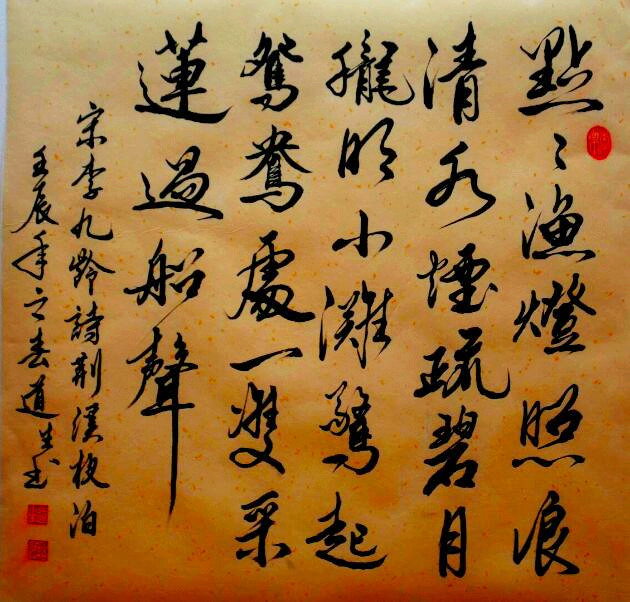 點〻漁燈照浪
清水煙疏碧月
朧明小灘驚起
鴛鴦處一雙采
蓮過船聲
宋李九齡詩荆溪夜泊
壬辰年之春道生书